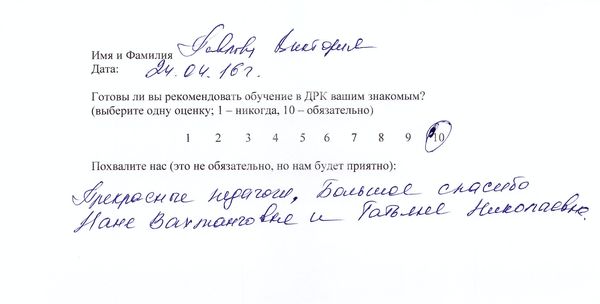 Имя и Фамилия Павлова Виктория
Дата: 24.04.16 г.
Готовы ли вы рекомендовать обучение в ДРК вашим знакомым?
(выберите одну оценку; 1 – никогда, 10 – обязательно)
1 2 3 4 5 6 7 8 9 10
Похвалите нас (это не обязательно, но нам будет приятно):
Прекрасные педагоги, Большое спасибо
Нане Вахтанговне и Татьяне Николаевне.